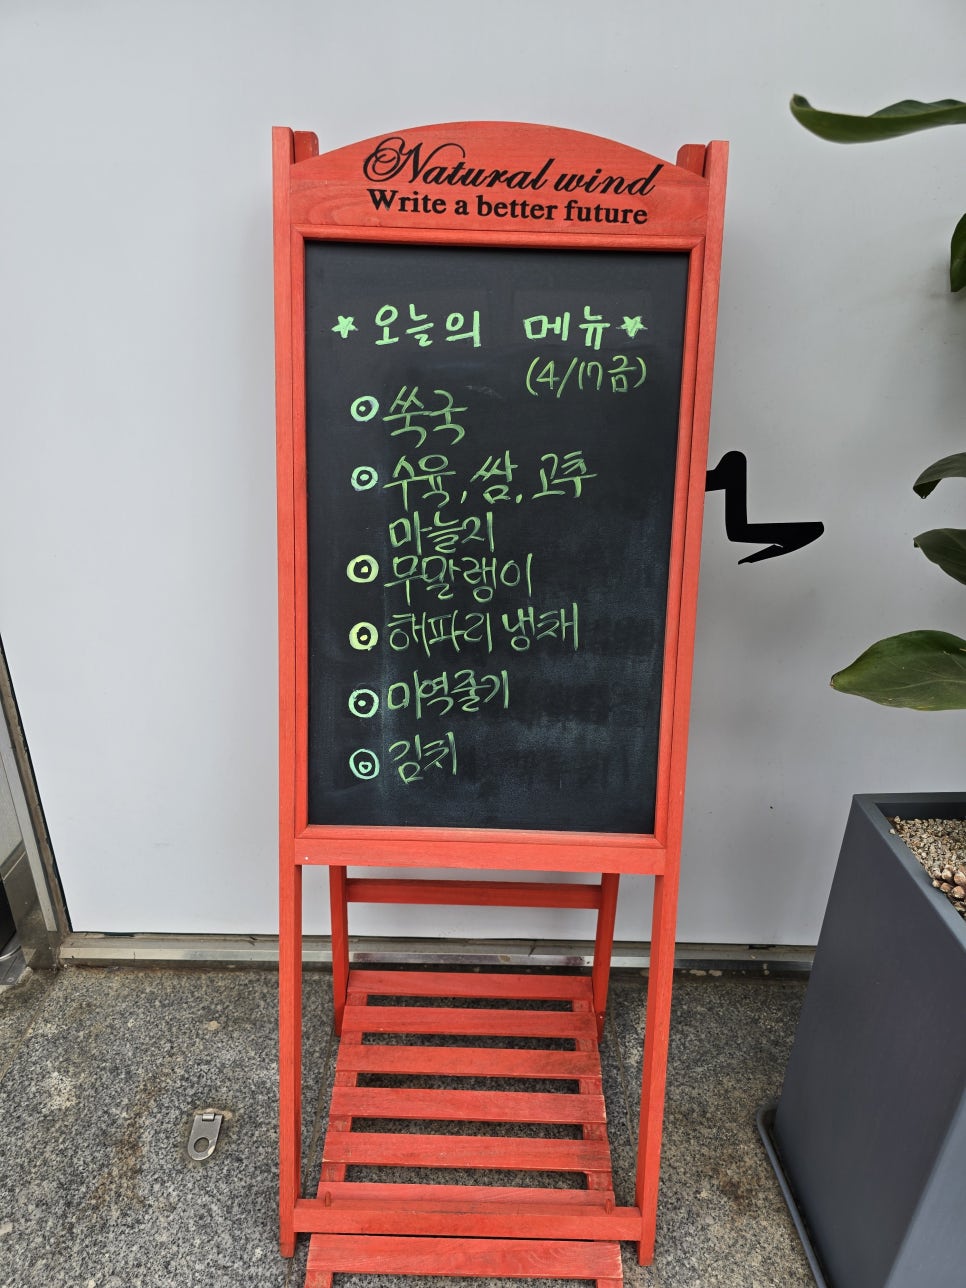 Natural wind
Write a better future
☆오늘의 메뉴☆
(4/17 금)
◎ 쑥국
◎ 수육, 쌈, 고추
마늘지
◎ 무말랭이
◎ 해파리 냉채
◎ 미역줄기
◎ 김치